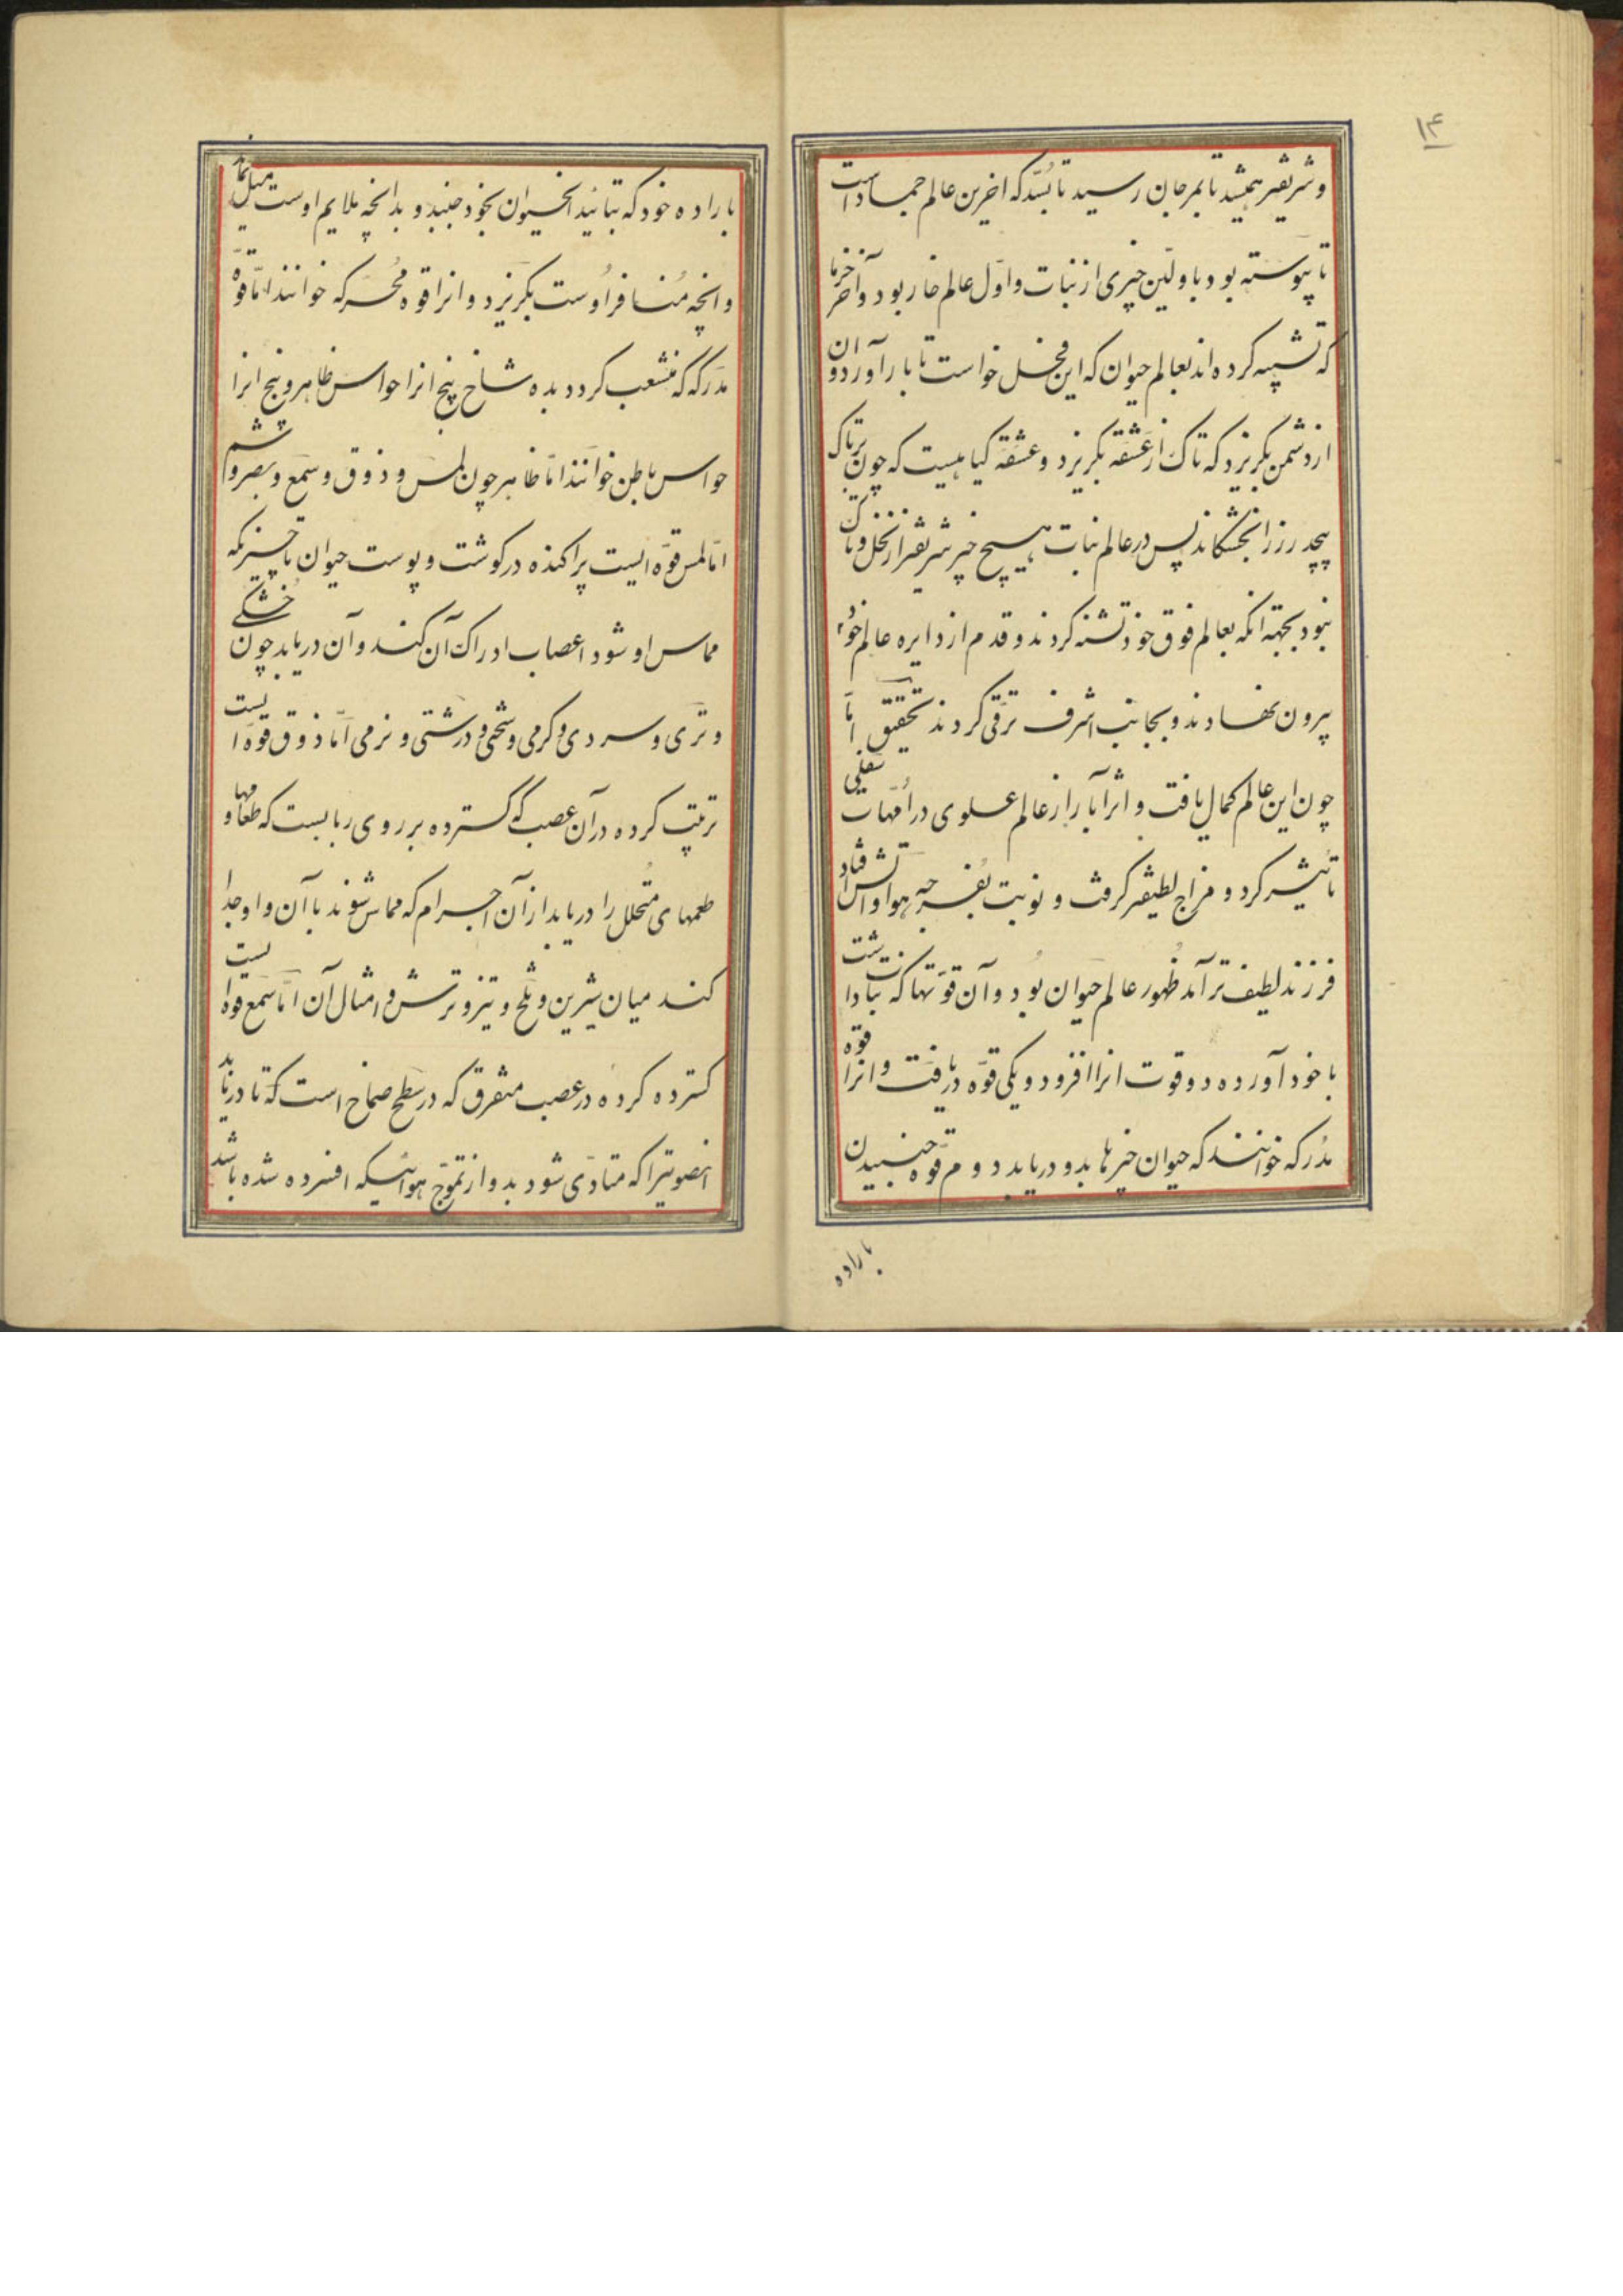 ۱۴
و شریفتر همیشد تا بمرجان رسید تا بُسّد که اخرین عالم جماد است
تا پیوسته بود باولین چیزی از نبات و اوّل عالم خار بود و آخر خرما
که تشبیه کرده اند بعالم حیوان که این فحل خواست تا بار آورد و آن
از دشمن بگریزد که تاک از عَشَقه بگریزد و عشقه گیاهیست که چون بر تاک
پیچد رز را بخشکاند پس در عالم نبات هیچ چیز شریفتر از نخل و تاک
نبود بجهة انکه بعالم فوق خود تشبّه کردند و قدم از دایره عالم خود
بیرون نهادند و بجانب اشرف ترقّی کردند تحقیق امّا
چون این عالم کمال یافت و اثر آبا را از عالم علوی در اُمّهات سفلی
تأثیر کرد و مزاج لطیفتر گرفت و نوبت بفرجه هوا و آتش افتاد
فرزند لطیف تر آمد ظهور عالم حیوان بود و آن قوّتها که نبات داشت
با خود آورده دو قوت انرا افزود و یکی قوّه دریافت و انرا قوّه
مُدرکه خوانند که حیوان چیزها بدو دریابد دوم قوّه جنبیدن
باراده
باراده خود که بتائید انحیوان بخود جنبد و بدانچه ملایم اوست میل نماید
و انچه مُنافر اوست بگریزد و انرا قوه مُحرّکه خوانند امّا قوّه
مدرکه که منشعب گردد بده شاخ پنج انرا حواس ظاهر و پنج انرا
حواس باطن خوانند امّا ظاهر چون لمس و ذوق و سَمع و بصر و شم
امّا لمس قوّه ایست پراکنده در گوشت و پوست حیوان تا چیزیکه
مماس او شود اعصاب ادراک آن کند و آن دریابد چون خشکی
و تری و سردی و گرمی و سختی و درشتی و نرمی امّا ذوق قوّه ایست
ترتیب کرده در آن عصب که گسترده بر روی زبانست که طعامها و
طعمهای متحلل را دریابد از آن اجرام که مماس شوند با آن و او جدا
کند میان شیرین و تلخ و تیز و ترش و امثال آن امّا سَمع قوه ایست
گسترده کرده در عصب متفرق که در سطح صماخ است که تا دریابد
انصوتیرا که متادّی شود بدو از تموّج هوائیکه افسرده شده باشد